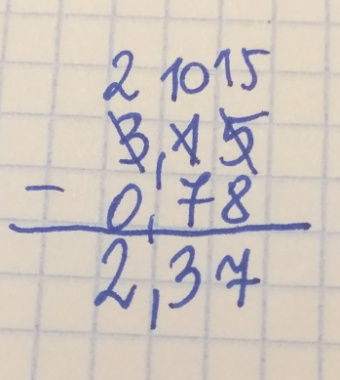 2 10 15
3,15
- 0,78
2,37